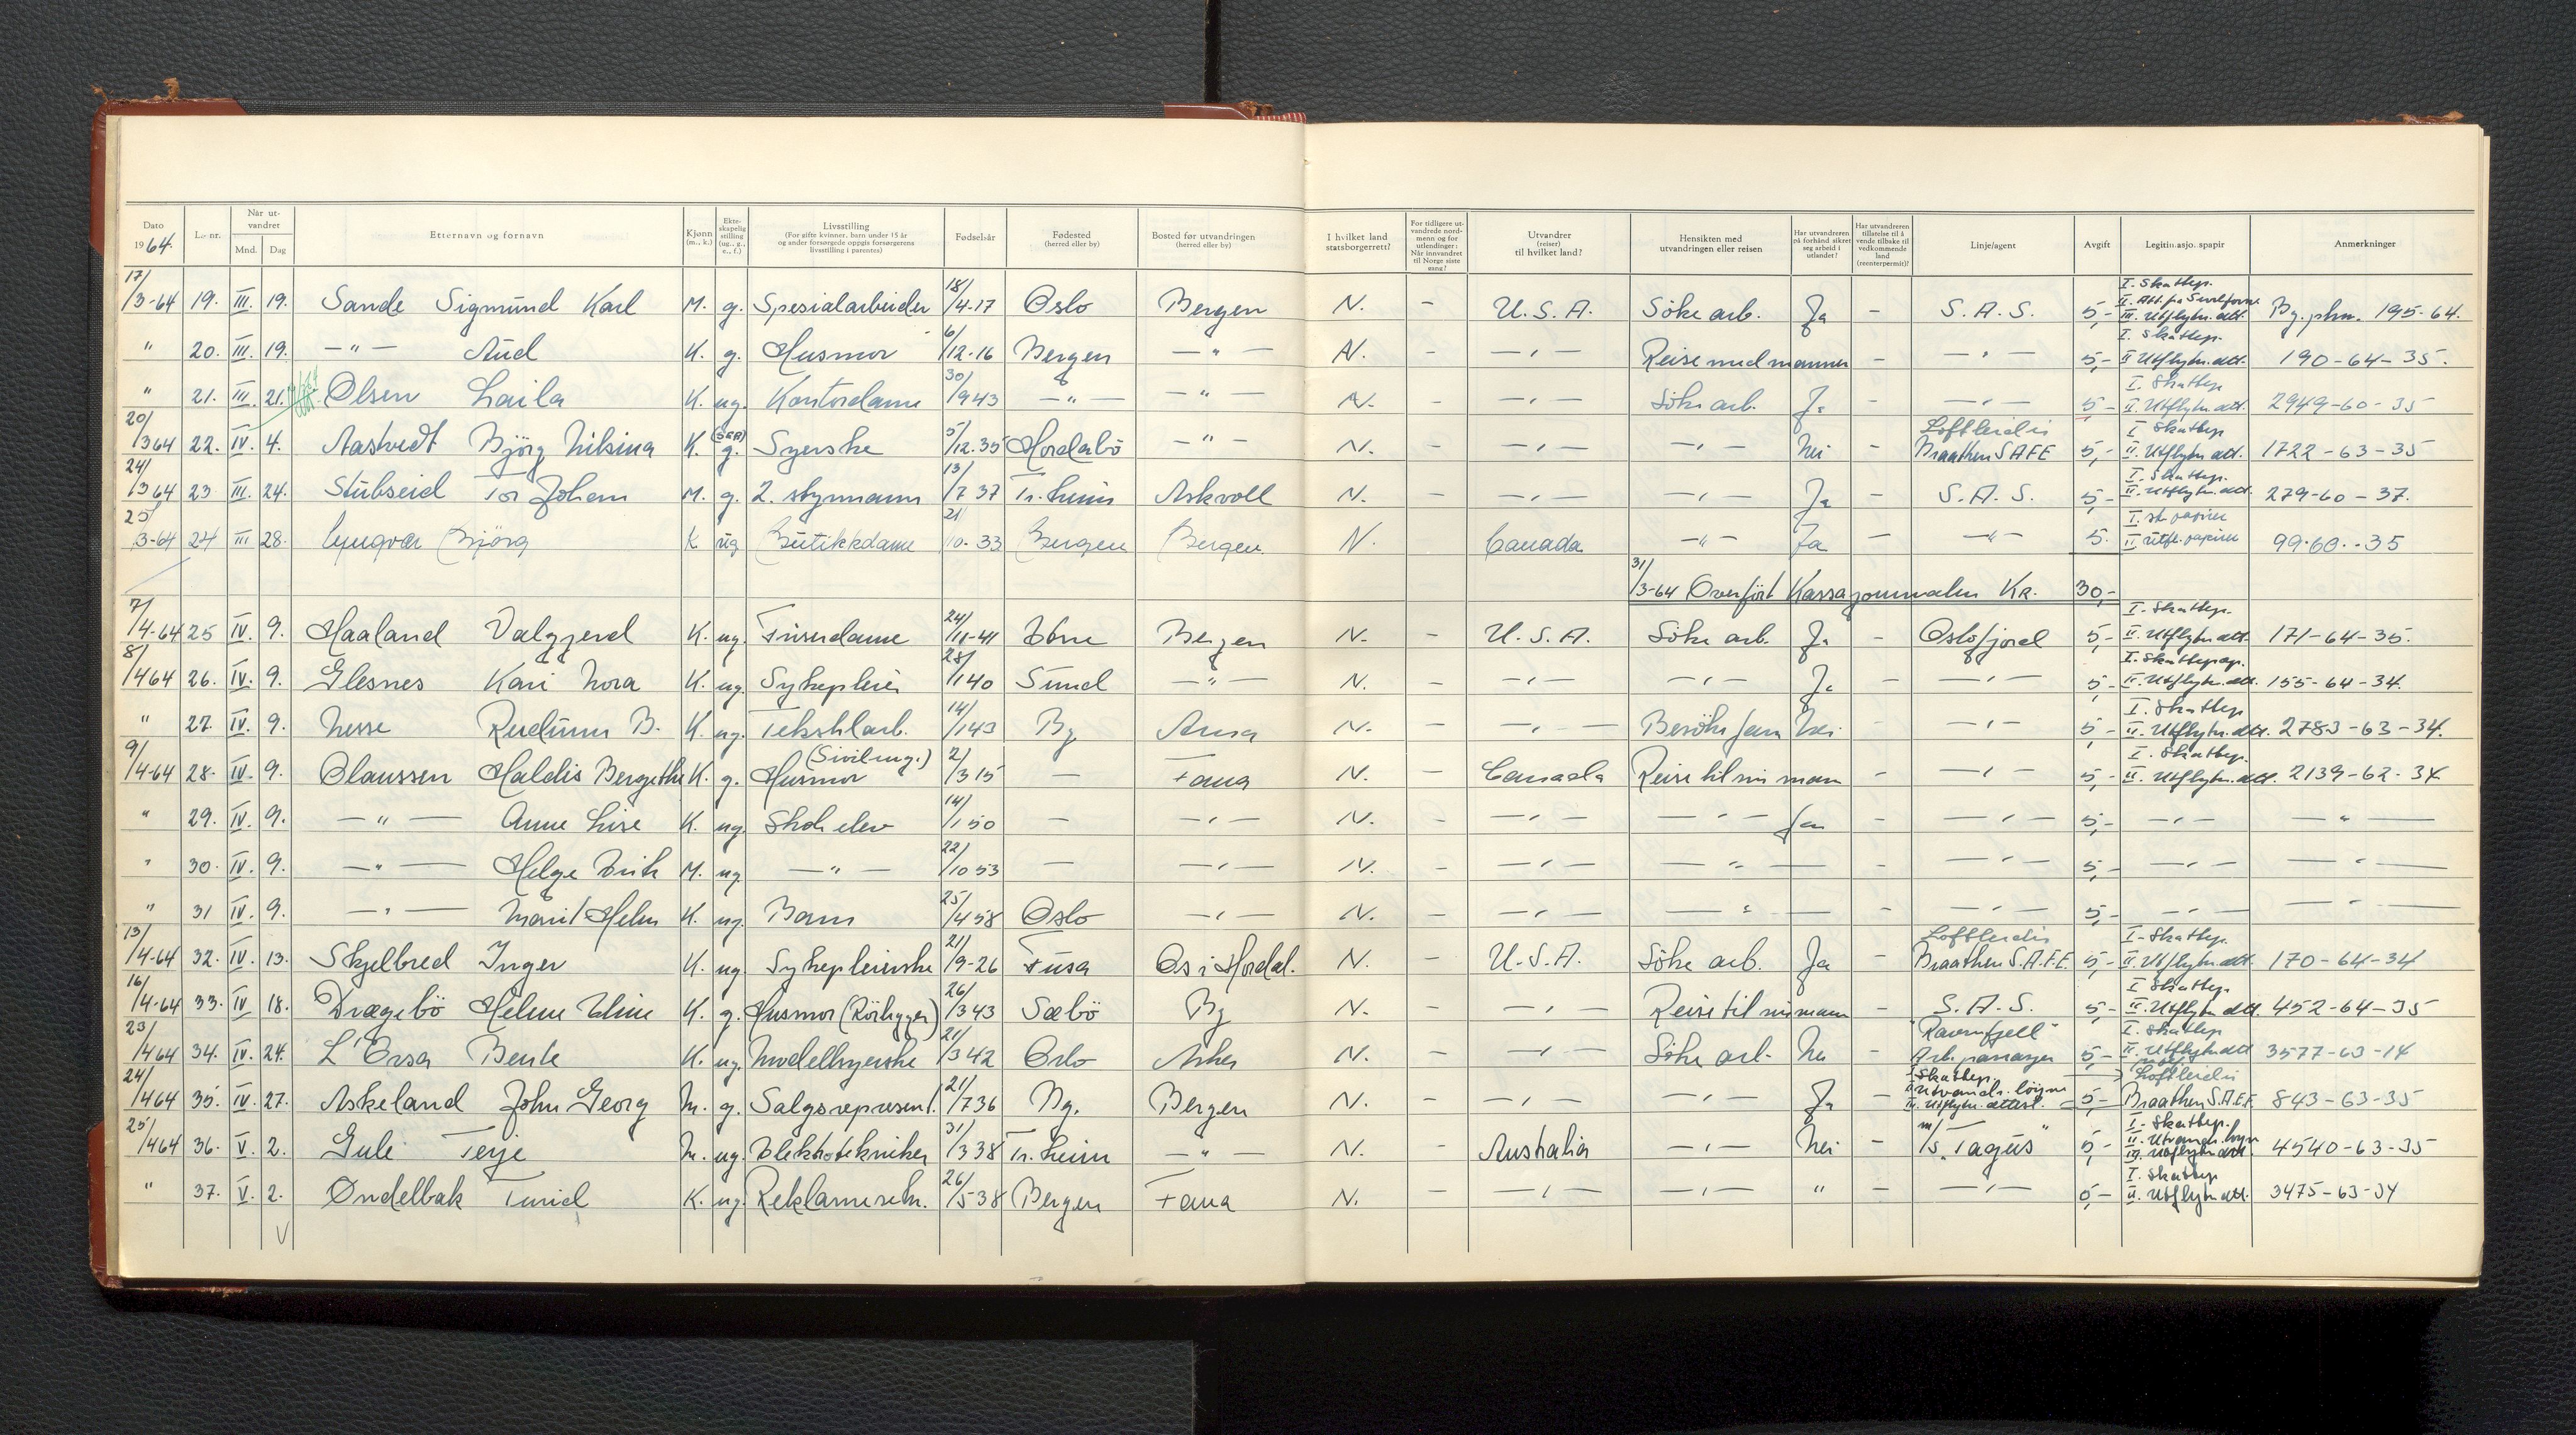 Dato 1964. L.nr. Når utvandret Mnd. Dag Etternavn og fornavn Kjønn (m., k.) Ekteskapelig stilling (ug., g., e., f.) Livsstilling (For gifte kvinner, barn under 15 år og andre forsørgede oppgis forsørgerens livsstilling i parentes) Fødselsår Fødested (herred eller by) Bosted før utvandringen (herred eller by) I hvilket land statsborgerrett? For tidligere utvandrede nordmenn og for utlendinger: Når innvandret til Norge siste gang? Utvandrer (reiser) til hvilket land? Hensikten med utvandringen eller reisen Har utvandreren på forhånd sikret seg arbeid i utlandet? Har utvandreren tillatelse til å vende tilbake til vedkommende land (reenterpermit)? Linje/agent Avgift Legitimasjonspapir Anmerkninger
17/3-64 19. III. 19. Sande Sigmund Karl M. g. Spesialarbeider 18/4-17 Oslo Bergen N. – U.S.A. Söke arb. Ja – S.A.S. 5,- I. Skattep. III. Utflytn. att. 195-64.
" 20. III. 19. –"– Aud K. g. Husmor 6/12-16 Bergen –"– N. – –"– Reise med mannen – –"– 5,- I. Skattep. II Utflytn. att. 190-64-35.
" 21. III. 21. Olsen Laila K. ug. Kontordame 30/9 43 –"– –"– N. – –"– Söke arb. Ja – –"– 5,- I. Skattep II. Utflytn. att. 2949-60-35
20/3 64 22. IV. 4. Aastvedt Björg Nilsina K. g. Syerske 5/12.35 Hordabö –"– N. – –"– –"– Nei – Loftleidis Braathen SAFE 5,- I Skattep II. Utflytn att. 1722-63-35
24/3 64 23 III. 24. Stubseid Tor Johan M. g. 2. styrmann 13/7 37 Tr.heim Askvoll N. – –"– –"– Ja – S.A.S. 5,- I. Skattep. II. Utflytn. att. 279-60-37.
25/3-64 24 III 28. Lyngvær Björg K ug Butikkdame 21/10-33 Bergen Bergen N. Canada –"– Ja – –"– 5. I. sk. papirer II utfl. papirer 99.60.-35
31/3-64 Overfört Kassajournalen Kr. 30,-
7/4-64 25 IV. 9. Haaland Valgjerd K. ug. Frisørdame 24/11-41 Etne Bergen N. – U.S.A. Söke arb. Ja – Oslofjord 5,- I. Skattep. II. Utflytn att. 171-64-35.
8/4 64 26. IV. 9. Glesnes Kari Nora K. ug. Sykepleier 28/1 40 Sund –"– N. – –"– –"– Ja – –"– 5,- I. Skattepap. II. Utflytn. att. 155-64-34.
" 27. IV. 9. Nesse B. K. ug. Tekstilarb. 14/1 43 By Arna N. – –"– Besöke fam Nei – –"– 5,- I. Skattep II. Utflytn. att. 2783-63-34.
9/4-64 28. IV. 9. Claussen Haldis Bergithe K. g. (Siviling.) Husmor 2/3 15 – Fana N. – Canada Reise til sin mann – –"– 5,- I. Skattep. II. Utflytn. att. 2139-62-34
" 29. IV. 9. –"– Anne Lise K. ug. Skoleelev 14/1 50 – –"– N. – –"– –"– far – –"– 5,- –"– –"–
" 30. IV. 9. –"– Helge Erik M. ug. –"– 22/10 53 – –"– N. – –"– –"– – –"– 5,- –"– –"–
" 31 IV. 9. –"– Marit Helen K. ug. Barn 25/4 58 Oslo –"– N. – –"– –"– – –"– 5,- –"– –"–
13/4-64 32. IV. 13. Skjelbred Inger K. ug Sykepleierske 21/9-26 Fusa Os i Hordal. N. – U.S.A. Söke arb. Ja – Loftleidis Braathen S.A.F.E. 5,- I. Skattep. II. Utflytn att. 170-64-34
16/4-64 33. IV 18. Drægebö Helene Eline K. g. Husmor (Rörlegger) 26/3 43 Sæbö By N. – –"– Reise til sin mann – S.A.S. 5,- I Skattep. II. Utflytn att. 452-64-35
23/4 64 34. IV. 24. L'Orsa Bente K. ug. Modellsyerske 21/3 42 Oslo Asker N. – –"– Söke arb. Nei – "Ravnefjell" Arb. passasjer 5,- I. Skattep II. Utflytn att 3577-63-14
24/4 64 35. IV. 27. Askeland John Georg M. g. Salgsrepresent. 21/7 36 Bg. Bergen N. – –"– –"– Ja – I Skattep. II Utvandr. löyve III. Utflytn. attest. 5,- Loftleidis Braathen S.A.F.E 843-63-35
25/4 64 36. V. 2. Gule Terje M. ug. Elektrotekniker 31/3 38 Tr.heim –"– N. – Australia –"– Nei – m/s "Tagus" 5,- I. Skattep. II. Utvandr. løyve III. Utflytn att. 4540-63-35
" 37. V. 2. Øndelbak Turid K. ug. Reklamesekr. 26/5 38 Bergen Fana N. – –"– –"– " – –"– 5,- I. Skattep II. Utflytn att. 3475-63-34